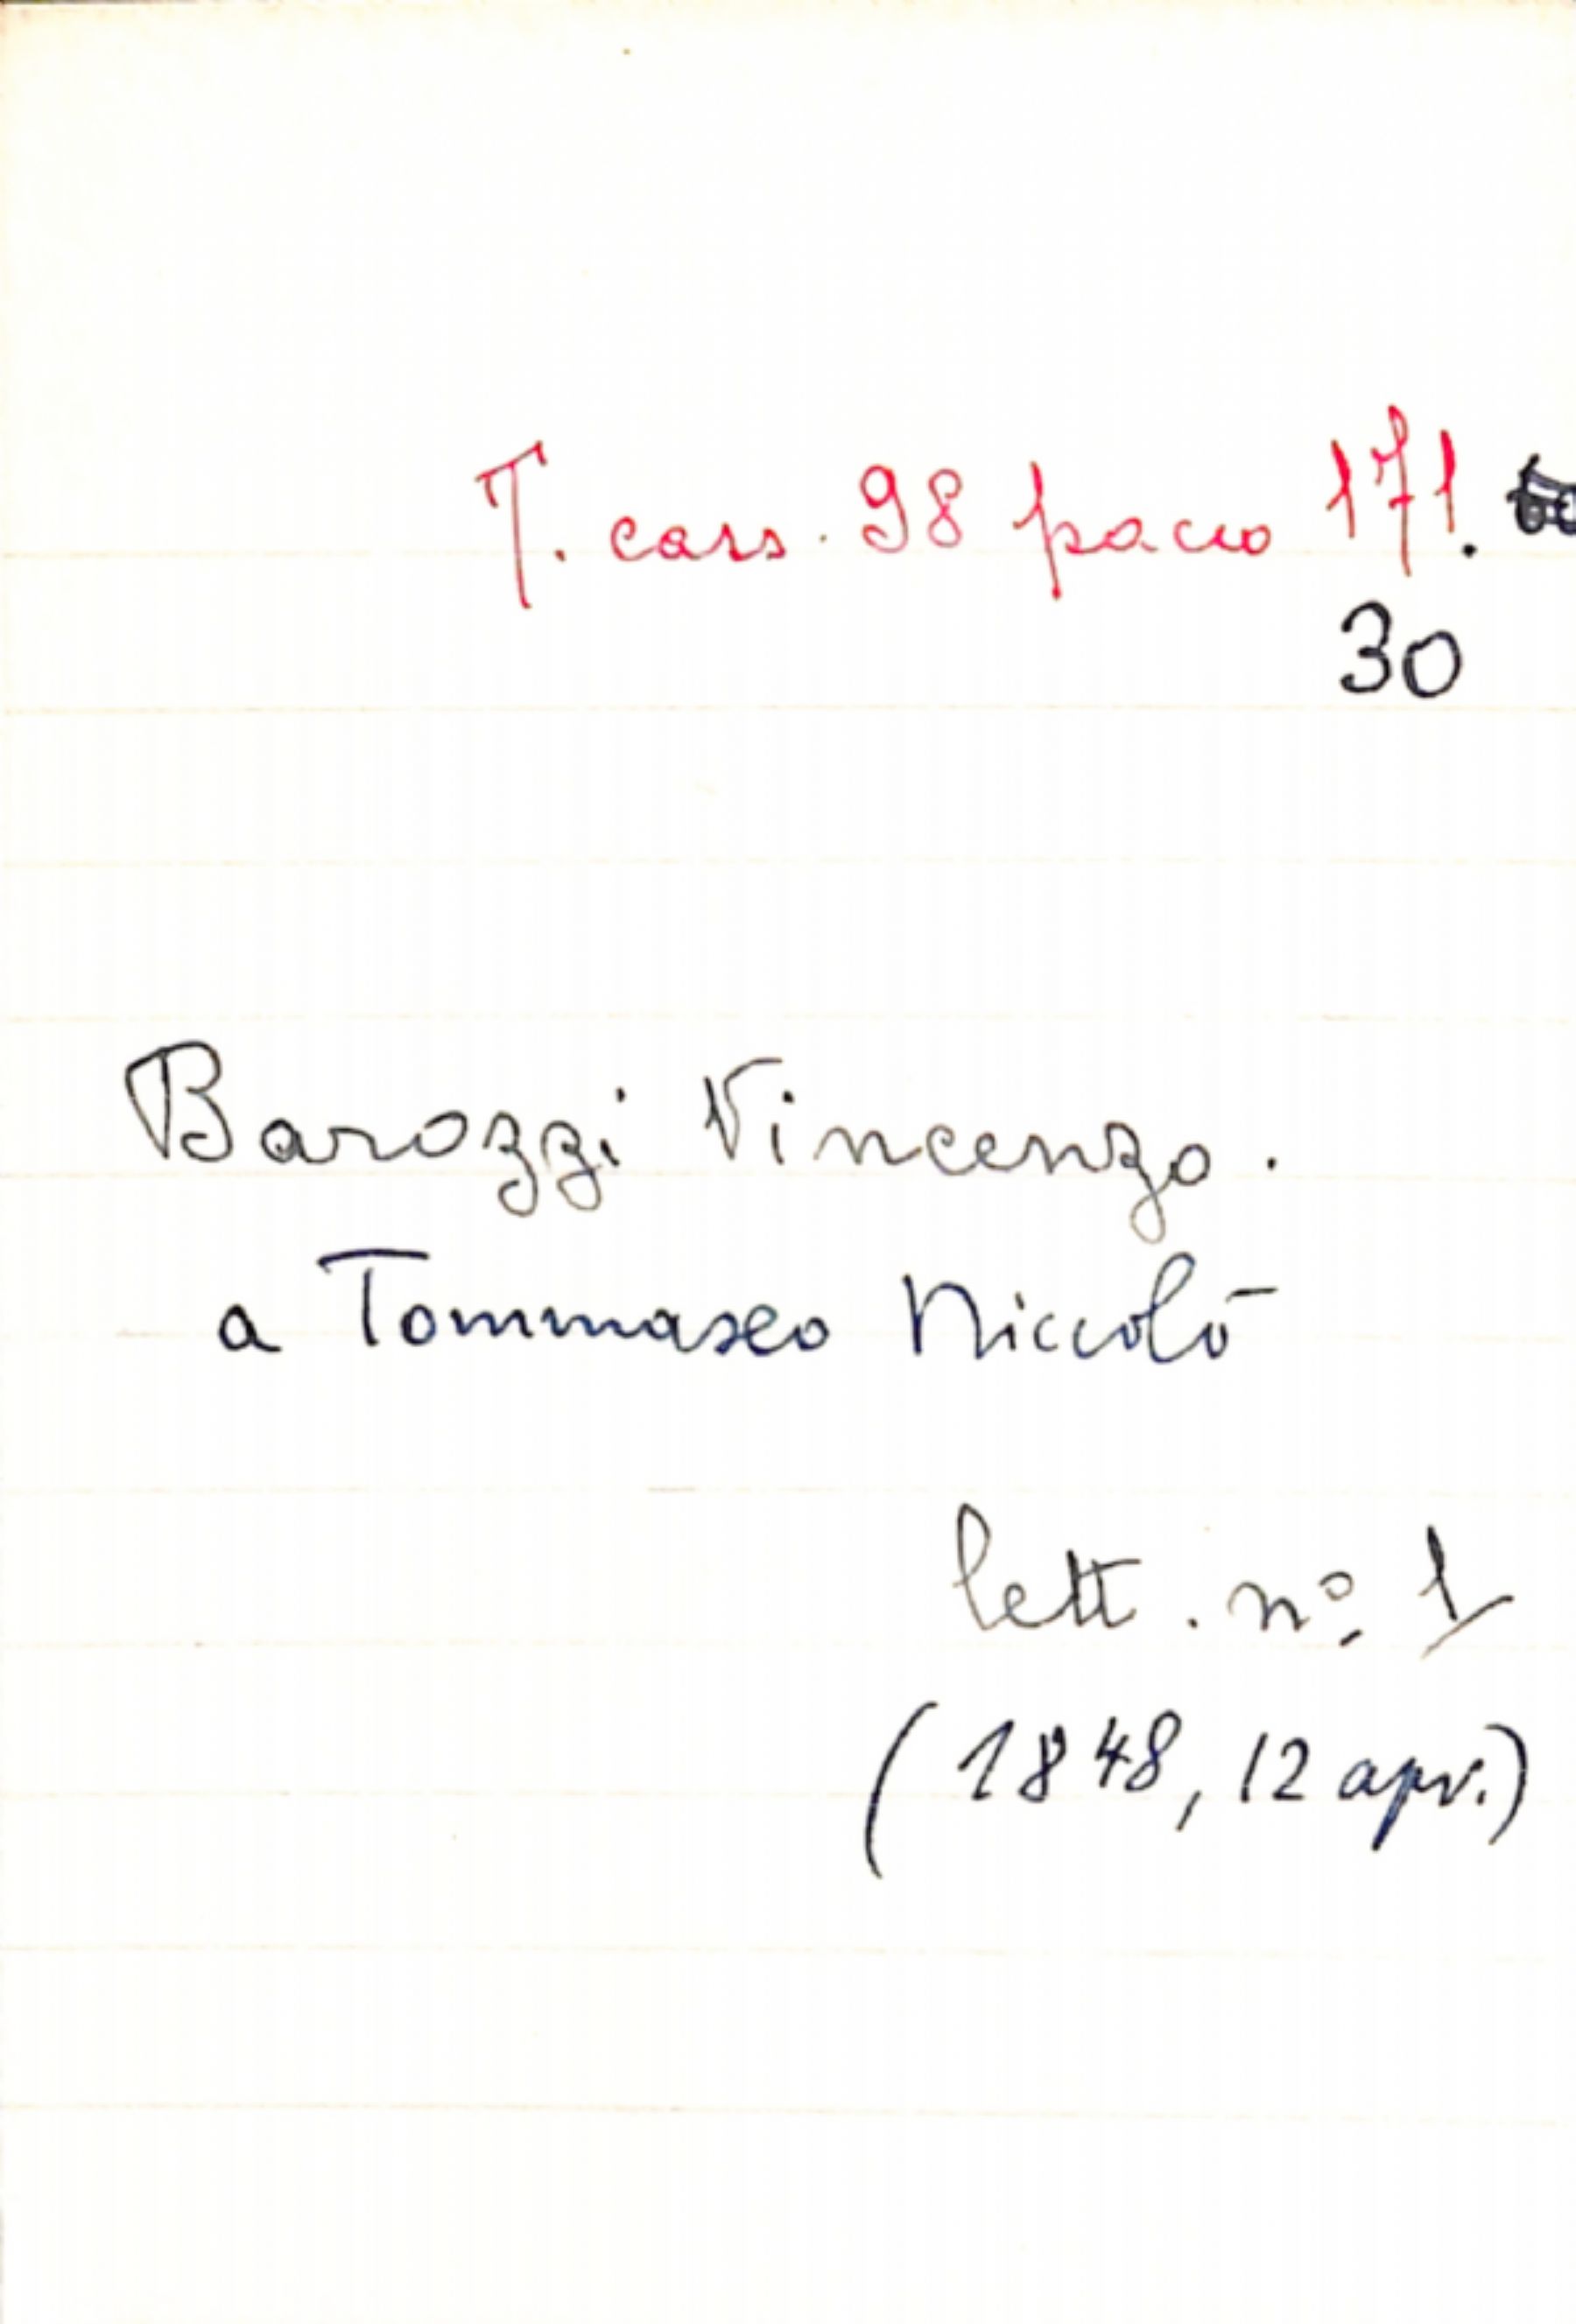 T. cass. 98 pacco 171.
30
Barozzi Vincenzo.
a Tommaseo Niccolò
lett. nº 1
(1848, 12 apr.)